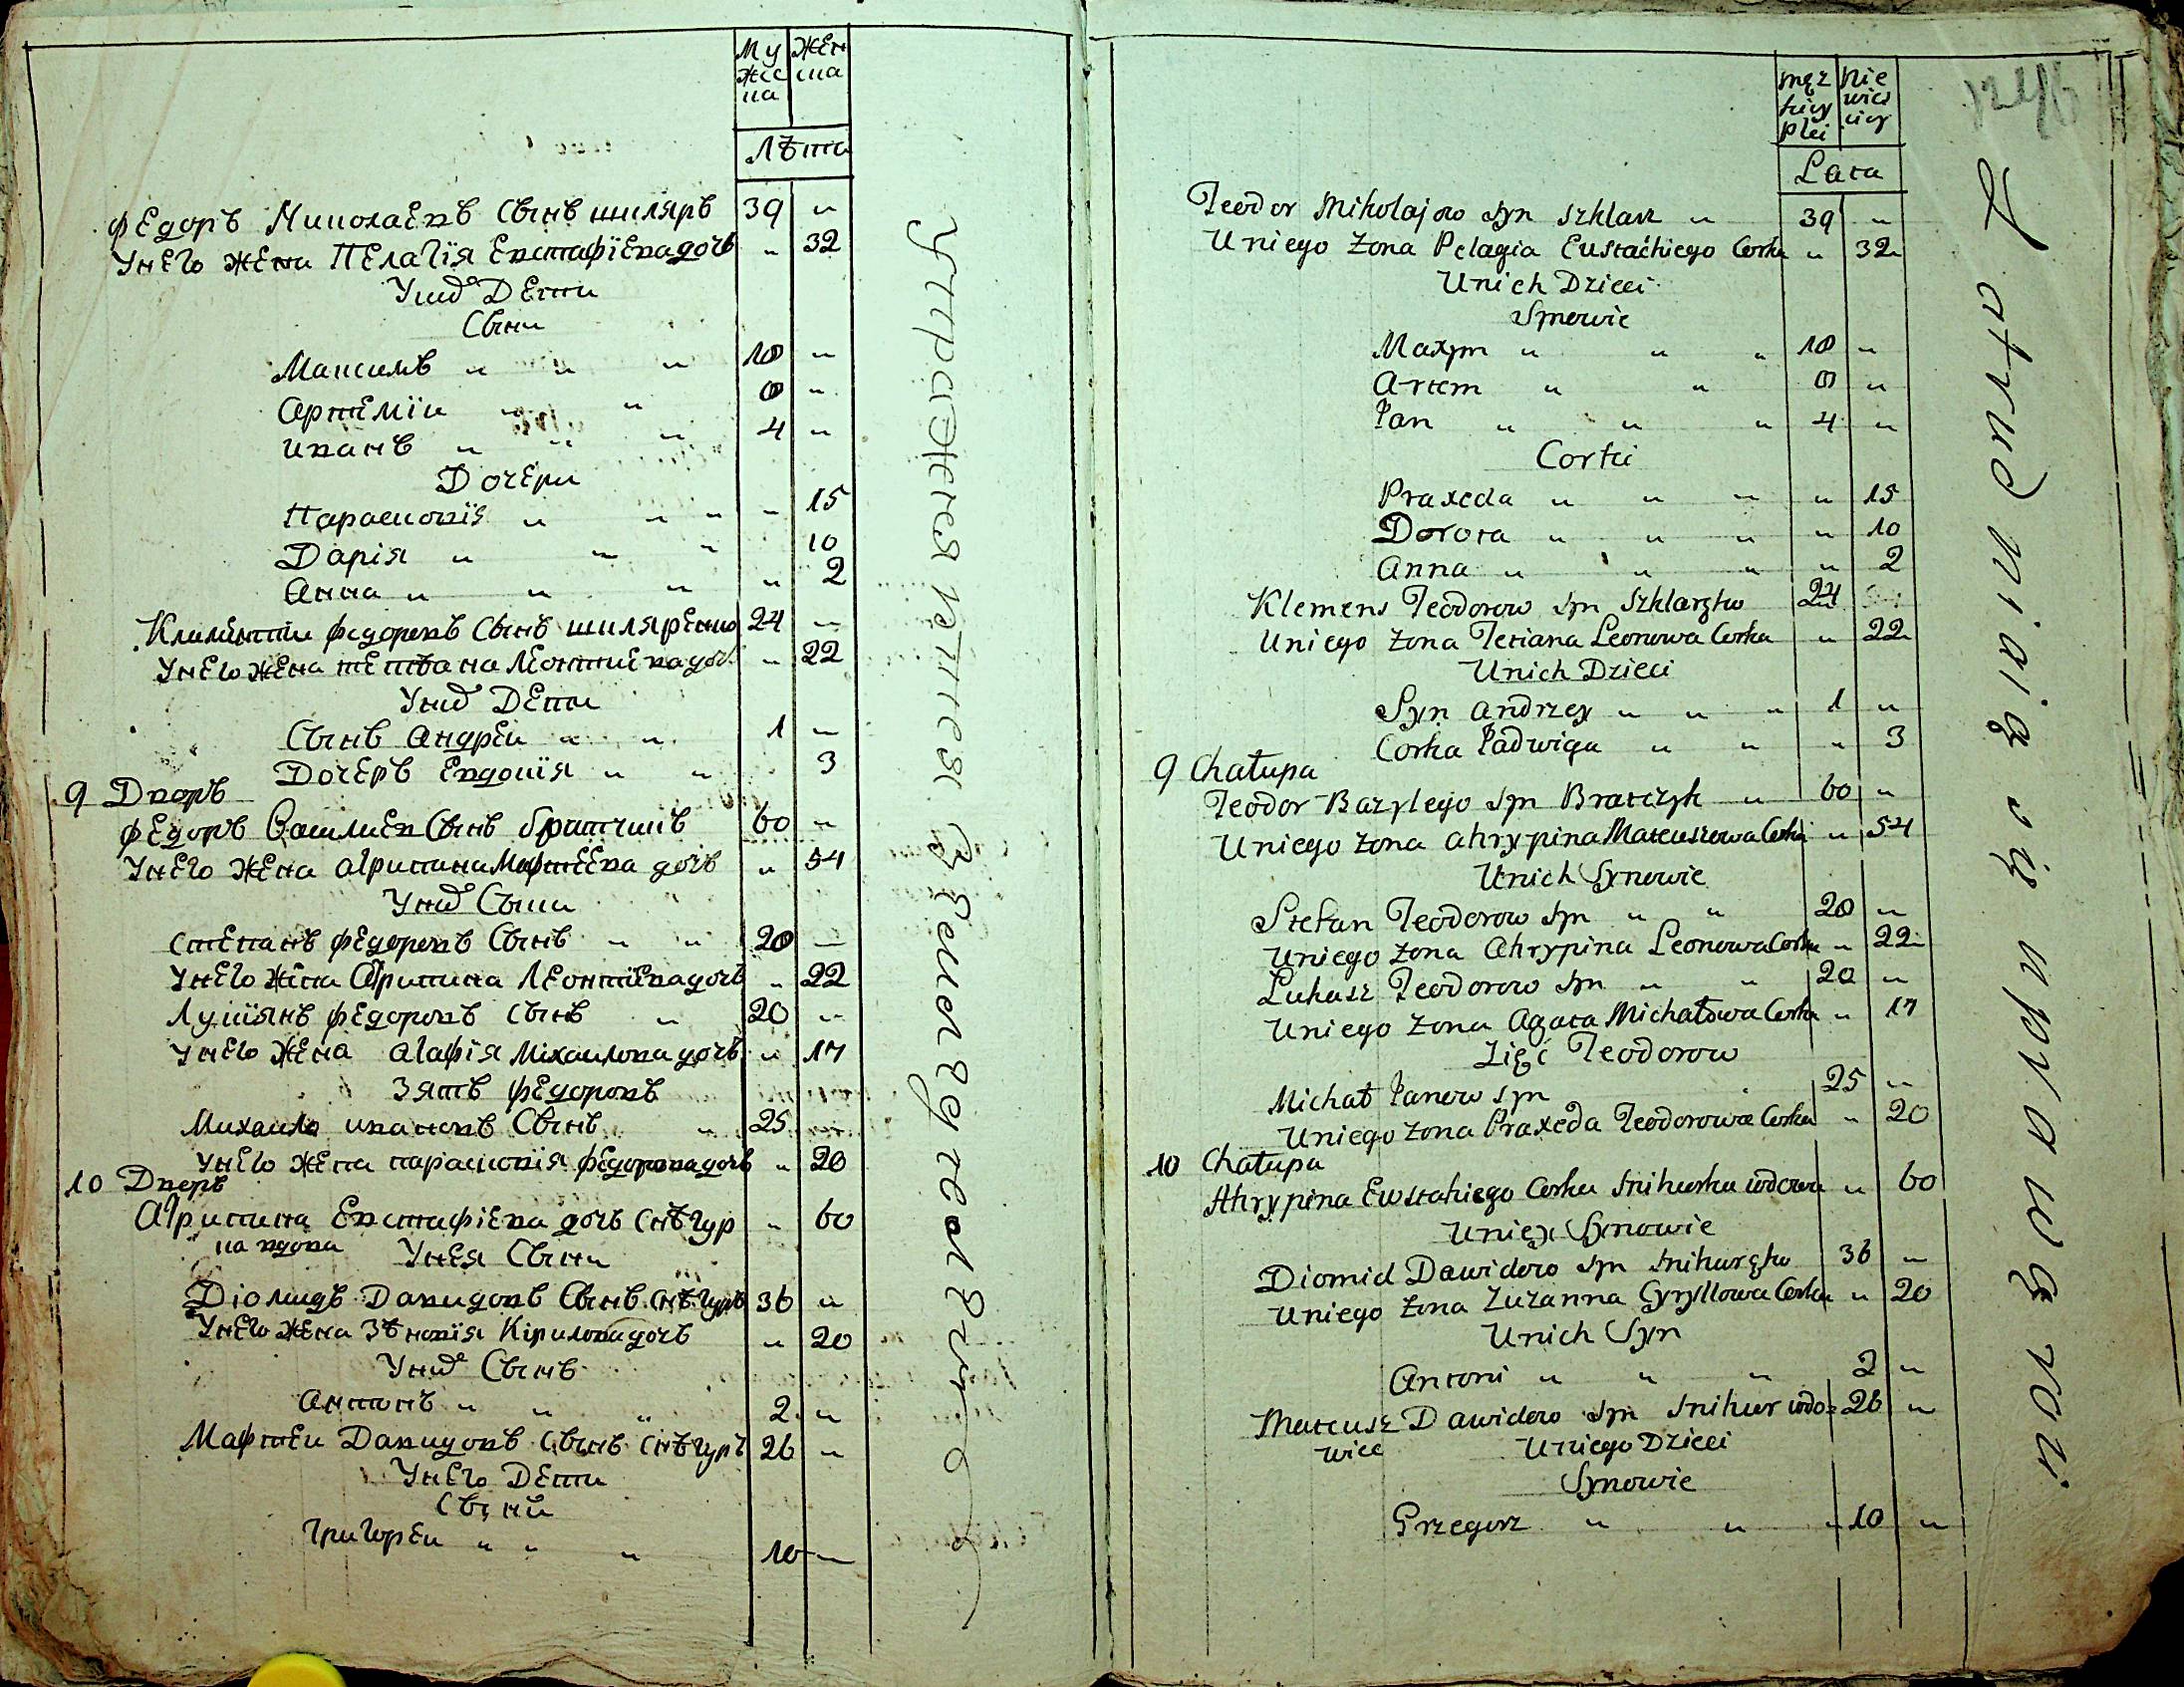 Му жес ка
Жен ска
Лѣта
Федоръ Миколаевъ Сынъ шкляръ 39 "
Унего жена Пелагія Евстафіева дочъ " 32
Унихъ Дети
Сыни
Максимъ " " " 18 "
Артемій " " 8 "
Иванъ " " " 4 "
Дочери
Парасковія " " " " 15
Дарія " " " 10
Анна " " " " 2
Климентій Федоровъ Сынъ шкляренко 24 "
Унего жена тетяна Леонтиева доч. " 22
Унихъ Дети
Сынъ Андрей " " 1 "
Дочеръ Евдокія " " 3
9 Дворъ
Федоръ Василиев Сынъ братчикъ 60 "
Унего жена агрипина Мафтеева дочъ " 54
Унихъ Сыни
Степанъ Федоровъ Сынъ " " 28 "
Унего жена Агрипина Леонтіева дочъ " 22
Лукіянъ Федоровъ Сынъ " 20 "
Унего жена агафія Міхаилова дочъ " 17
Зять Федоровъ
Михаило ивановъ Сынъ " 25 "
Унего жена парасковія федорова дочъ " 20
10 Дворъ
Агрипина Евстафіева дочъ Снѣгур " 60
ка вдова Унея Сыни
Діомидъ Давидовъ Сынъ Снѣгуръ 36 "
Унего жена Зѣновія Кірилова дочъ " 28
Унихъ Сынъ
Антонъ " " " 2 "
Мафтей Давидовъ Сынъ Снѣгуръ 26 "
Унего Дети
Сыни
Григорей " " " 10 "
męz kiey płci
nie wies ciey
Lata
Teodor Mikolajow Syn Szklarz " 39 "
Uniego Zona Pelagia Eustachiego Corka " 32
Unich Dzieci
Synowie
Maxym " " " 18 "
Artem " " 8 "
Jan " " " 4 "
Corki
Praxeda " " " " 15
Dorota " " " " 10
Anna " " " " 2
Klemens Teodorow Syn Szklarzko 24
Uniego Zona Tetiana Leonowa Corka " 22
Unich Dzieci
Syn Andrzey " " " 1 "
Corka Jadwiga " " " 3
9 Chałupa
Teodor Bazylego Syn Bratczyk " 60 "
Uniego Zona Ahrypina Mateuszowa Corka " 54
Unich Synowie
Stefan Teodorow Syn " " 28 "
Uniego Zona Ahrypina Leonowa Corka " 22
Lukasz Teodorow Syn " " 20 "
Uniego Zona Agata Michałowa Corka " 17
Zięć Teodorow
Michał Janow Syn " 25 "
Uniego Zona Praxeda Teodorowa Corka " 20
10 Chałupa
Ahrypina Ewstahiego Corka Snihurka wdowa " 60
Unieÿ Synowie
Diomid Dawidow Syn Snihurzko 36 "
Uniego Zona Zuzanna Gyryllowa Corka " 28
Unich Syn
Antoni " " " 2 "
Mateusz Dawidow Syn Snihur wdo= 26 "
wiec Uniego Dzieci
Synowie
Grzegorz " " " 10 "